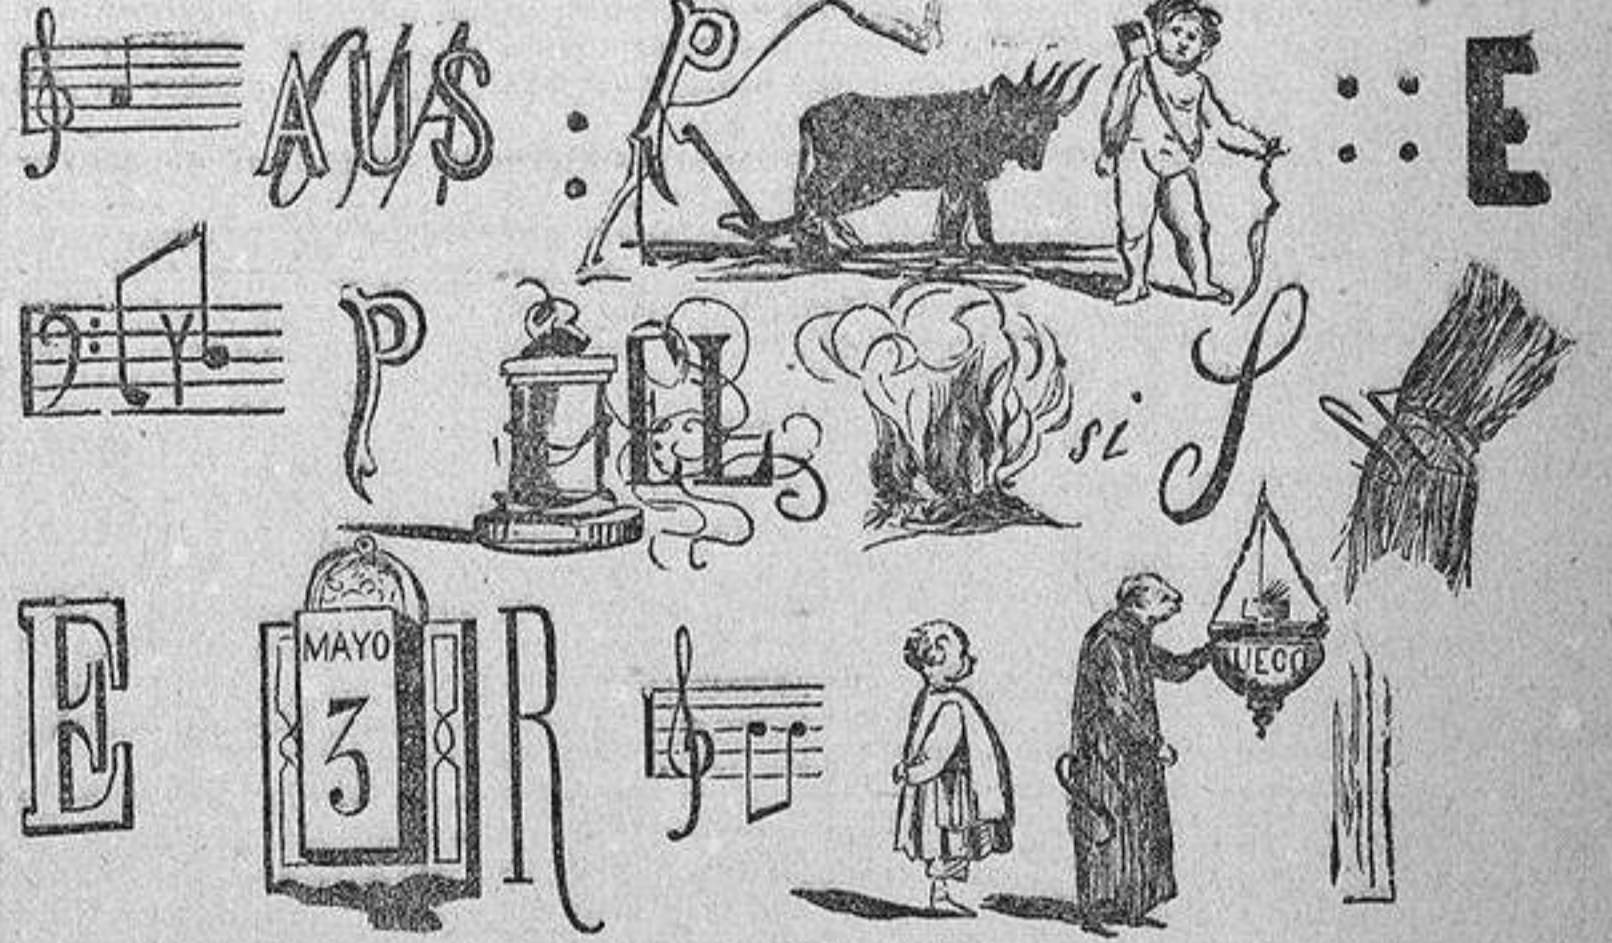 AUS : P :: E
Y P EL si S
E MAYO 3 R